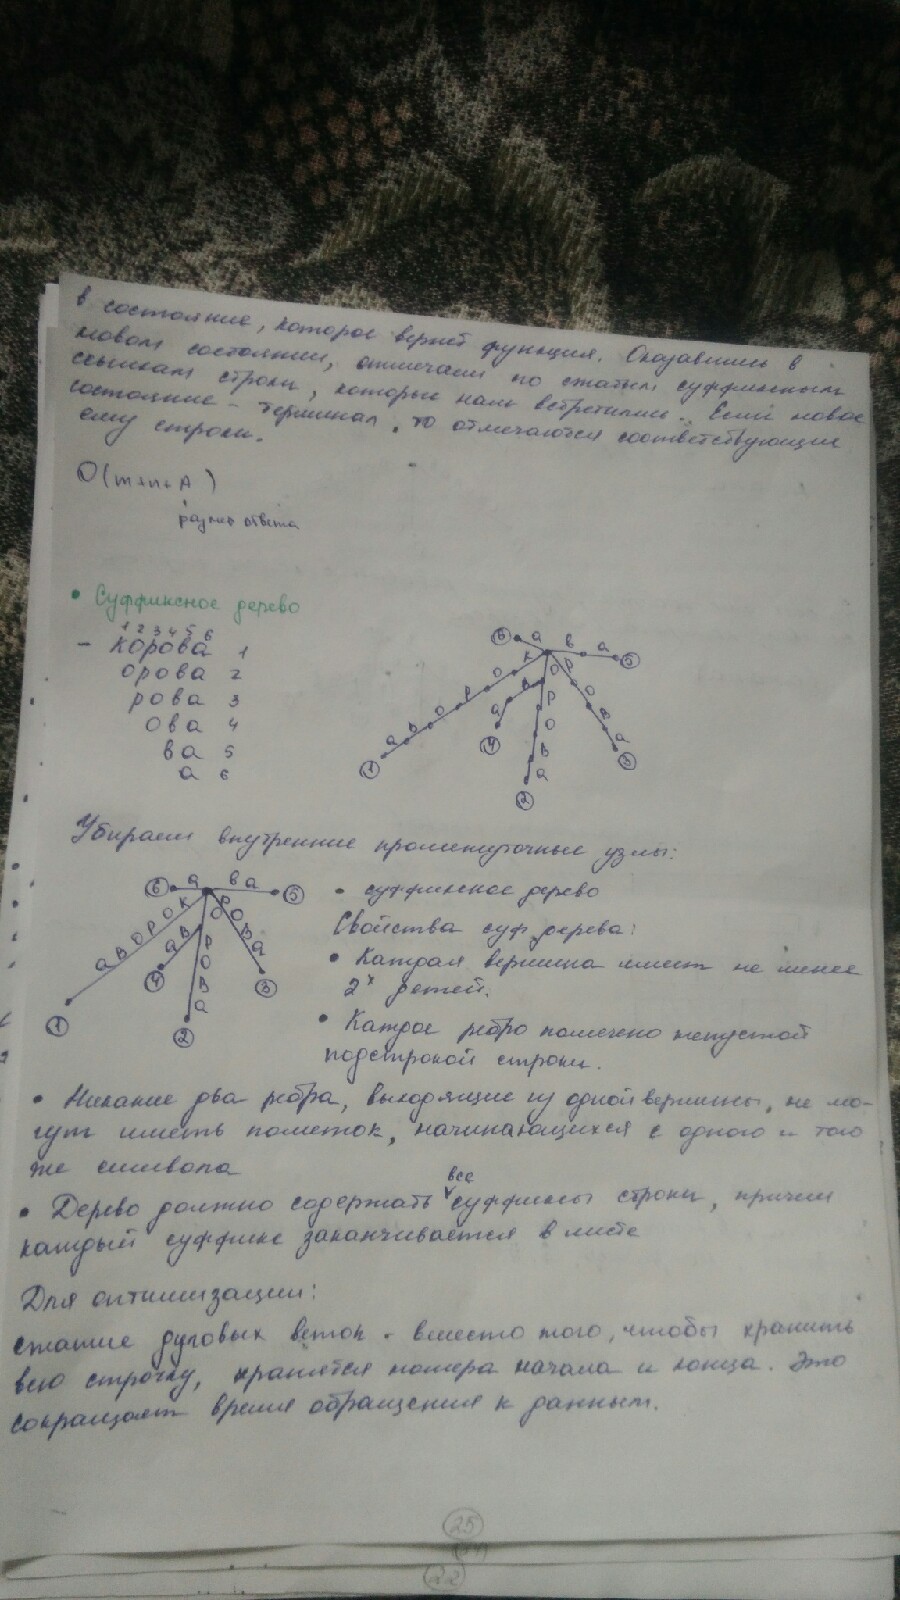 в состояние, которое вернет функция. Оказавшись в
новом состоянии, отмечаем по сжатым суффиксным
ссылкам строки, которые нам встретились. Если новое
состояние - терминал, то отмечаются соответствующие
ему строки.
O(m+n+A)
размер ответа
• Суффиксное дерево
1 2 3 4 5 6
- корова 1
орова 2
рова 3
ова 4
ва 5
а 6
6 а в а 5
к о р о в а 1
о в а 4
р о в а 2
р о в а 3
Убираем внутренние промежуточные узлы:
6 а ва 5
корова 1
о ва 4
рова 2
рова 3
• суффиксное дерево
Свойства суф. дерева:
• Каждая вершина имеет не менее
2х детей.
• Каждое ребро помечено непустой
подстрокой строки.
• Никакие два ребра, выходящие из одной вершины, не мо-
гут иметь пометок, начинающихся с одного и того
же символа
• Дерево должно содержать все суффиксы строки, причем
каждый суффикс заканчивается в листе
Для оптимизации:
сжатие дуговых веток - вместо того, чтобы хранить
всю строчку, хранятся номера начала и конца. Это
сокращает время обращения к данным.
25
22